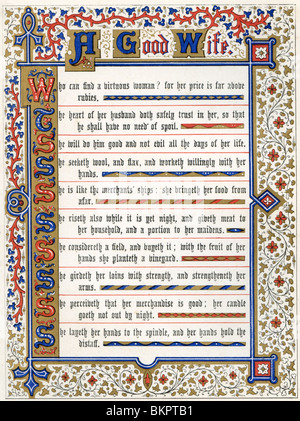 A Good Wife.
Who can find a virtuous woman? for her price is far above
rubies,
The heart of her husband doth safely trust in her, so that
he shall have no need of spoil.
She will do him good and not evil all the days of her life.
She seeketh wool, and flax, and worketh willingly with her
hands.
She is like the merchants' ships: she bringeth her food from
afar.
She riseth also while it is yet night, and giveth meat to
her household, and a portion to her maidens.
She considereth a field, and buyeth it; with the fruit of her
hands she planteth a vineyard.
She girdeth her loins with strength, and strengtheneth her
arms.
She perceiveth that her merchandise is good; her candle
goeth not out by night.
She layeth her hands to the spindle, and her hands hold the
distaff.
BKPTB1